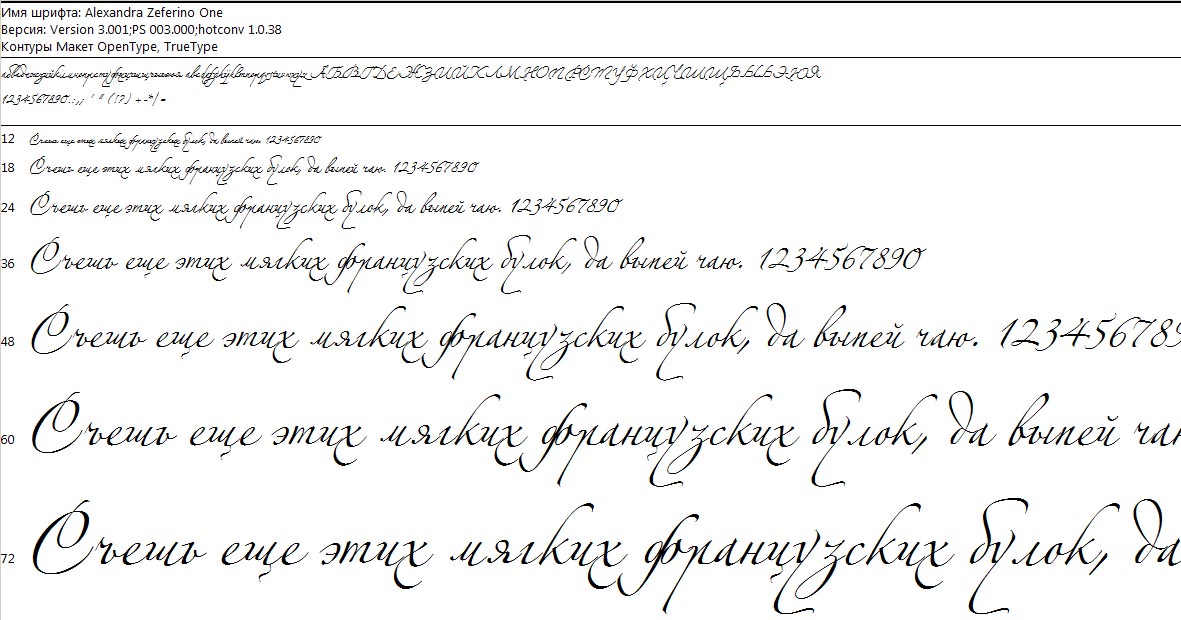 Имя шрифта: Alexandra Zeferino One
Версия: Version 3.001;PS 003.000;hotconv 1.0.38
Контуры Макет OpenType, TrueType
АБВГДЕЖЗИЙКЛМНОПРСТУФХЦЧШЩЪЫЬЭЮЯ
1234567890.:,; ' " (!?) +-*/=
12 Съешь еще этих мягких французских булок, да выпей чаю. 1234567890
18 Съешь еще этих мягких французских булок, да выпей чаю. 1234567890
24 Съешь еще этих мягких французских булок, да выпей чаю. 1234567890
36 Съешь еще этих мягких французских булок, да выпей чаю. 1234567890
48 Съешь еще этих мягких французских булок, да выпей чаю. 123456789
60 Съешь еще этих мягких французских булок, да выпей чаю
72 Съешь еще этих мягких французских булок, да